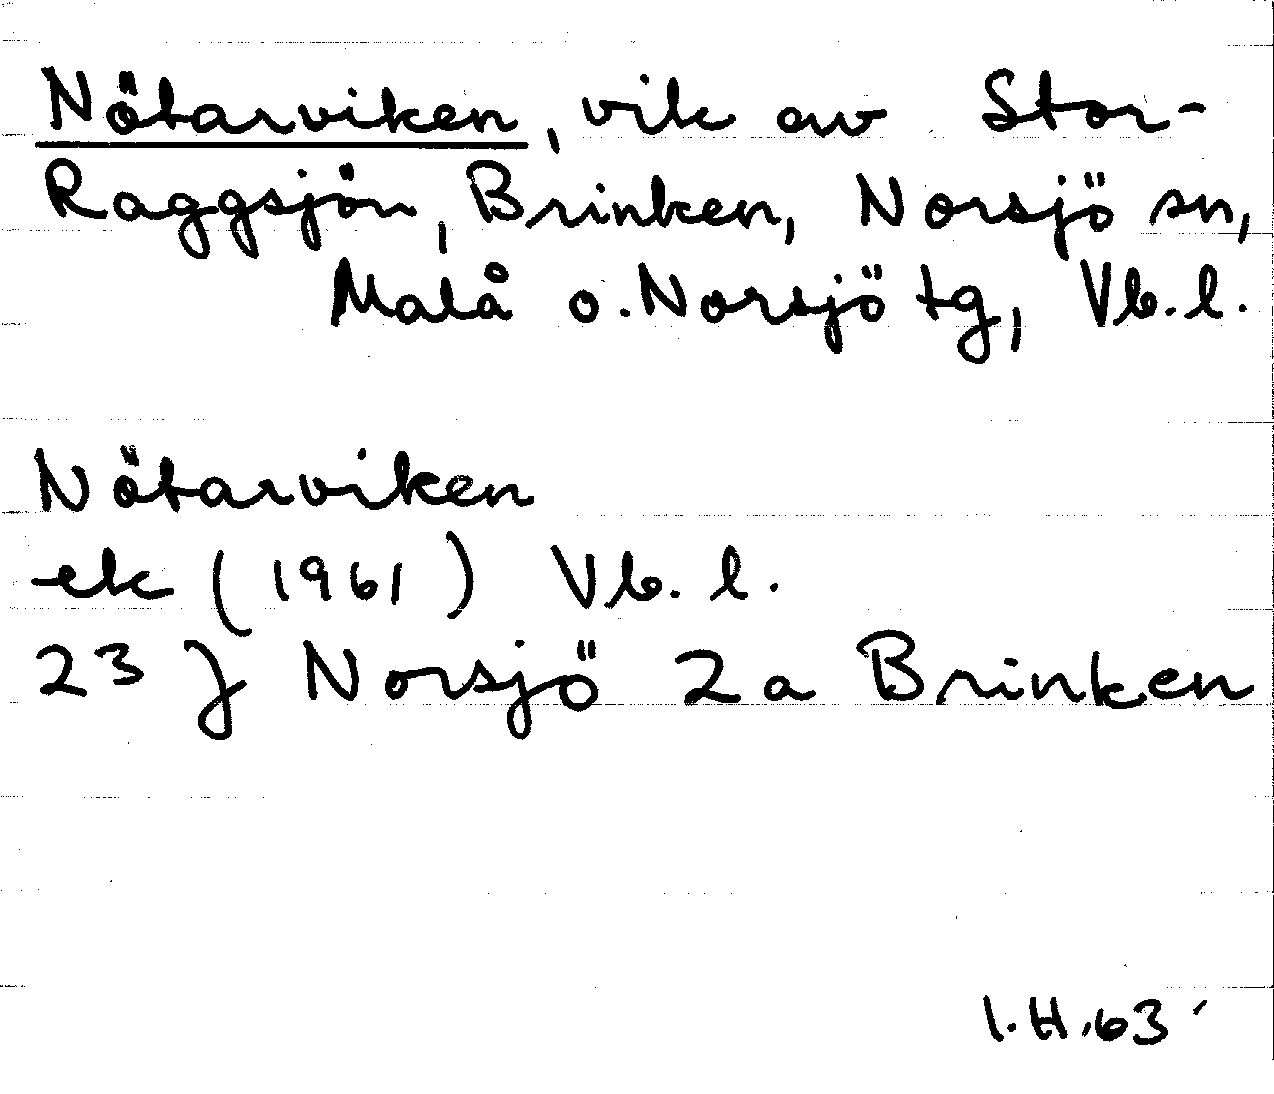 Nötarviken, vik av Stor-
Raggsjön, Brinken, Norsjö sn,
Malå o. Norsjö tg, Vb. l.
Nötarviken
ek (1961) Vb. l.
23 J Norsjö 2a Brinken
I. H. 63